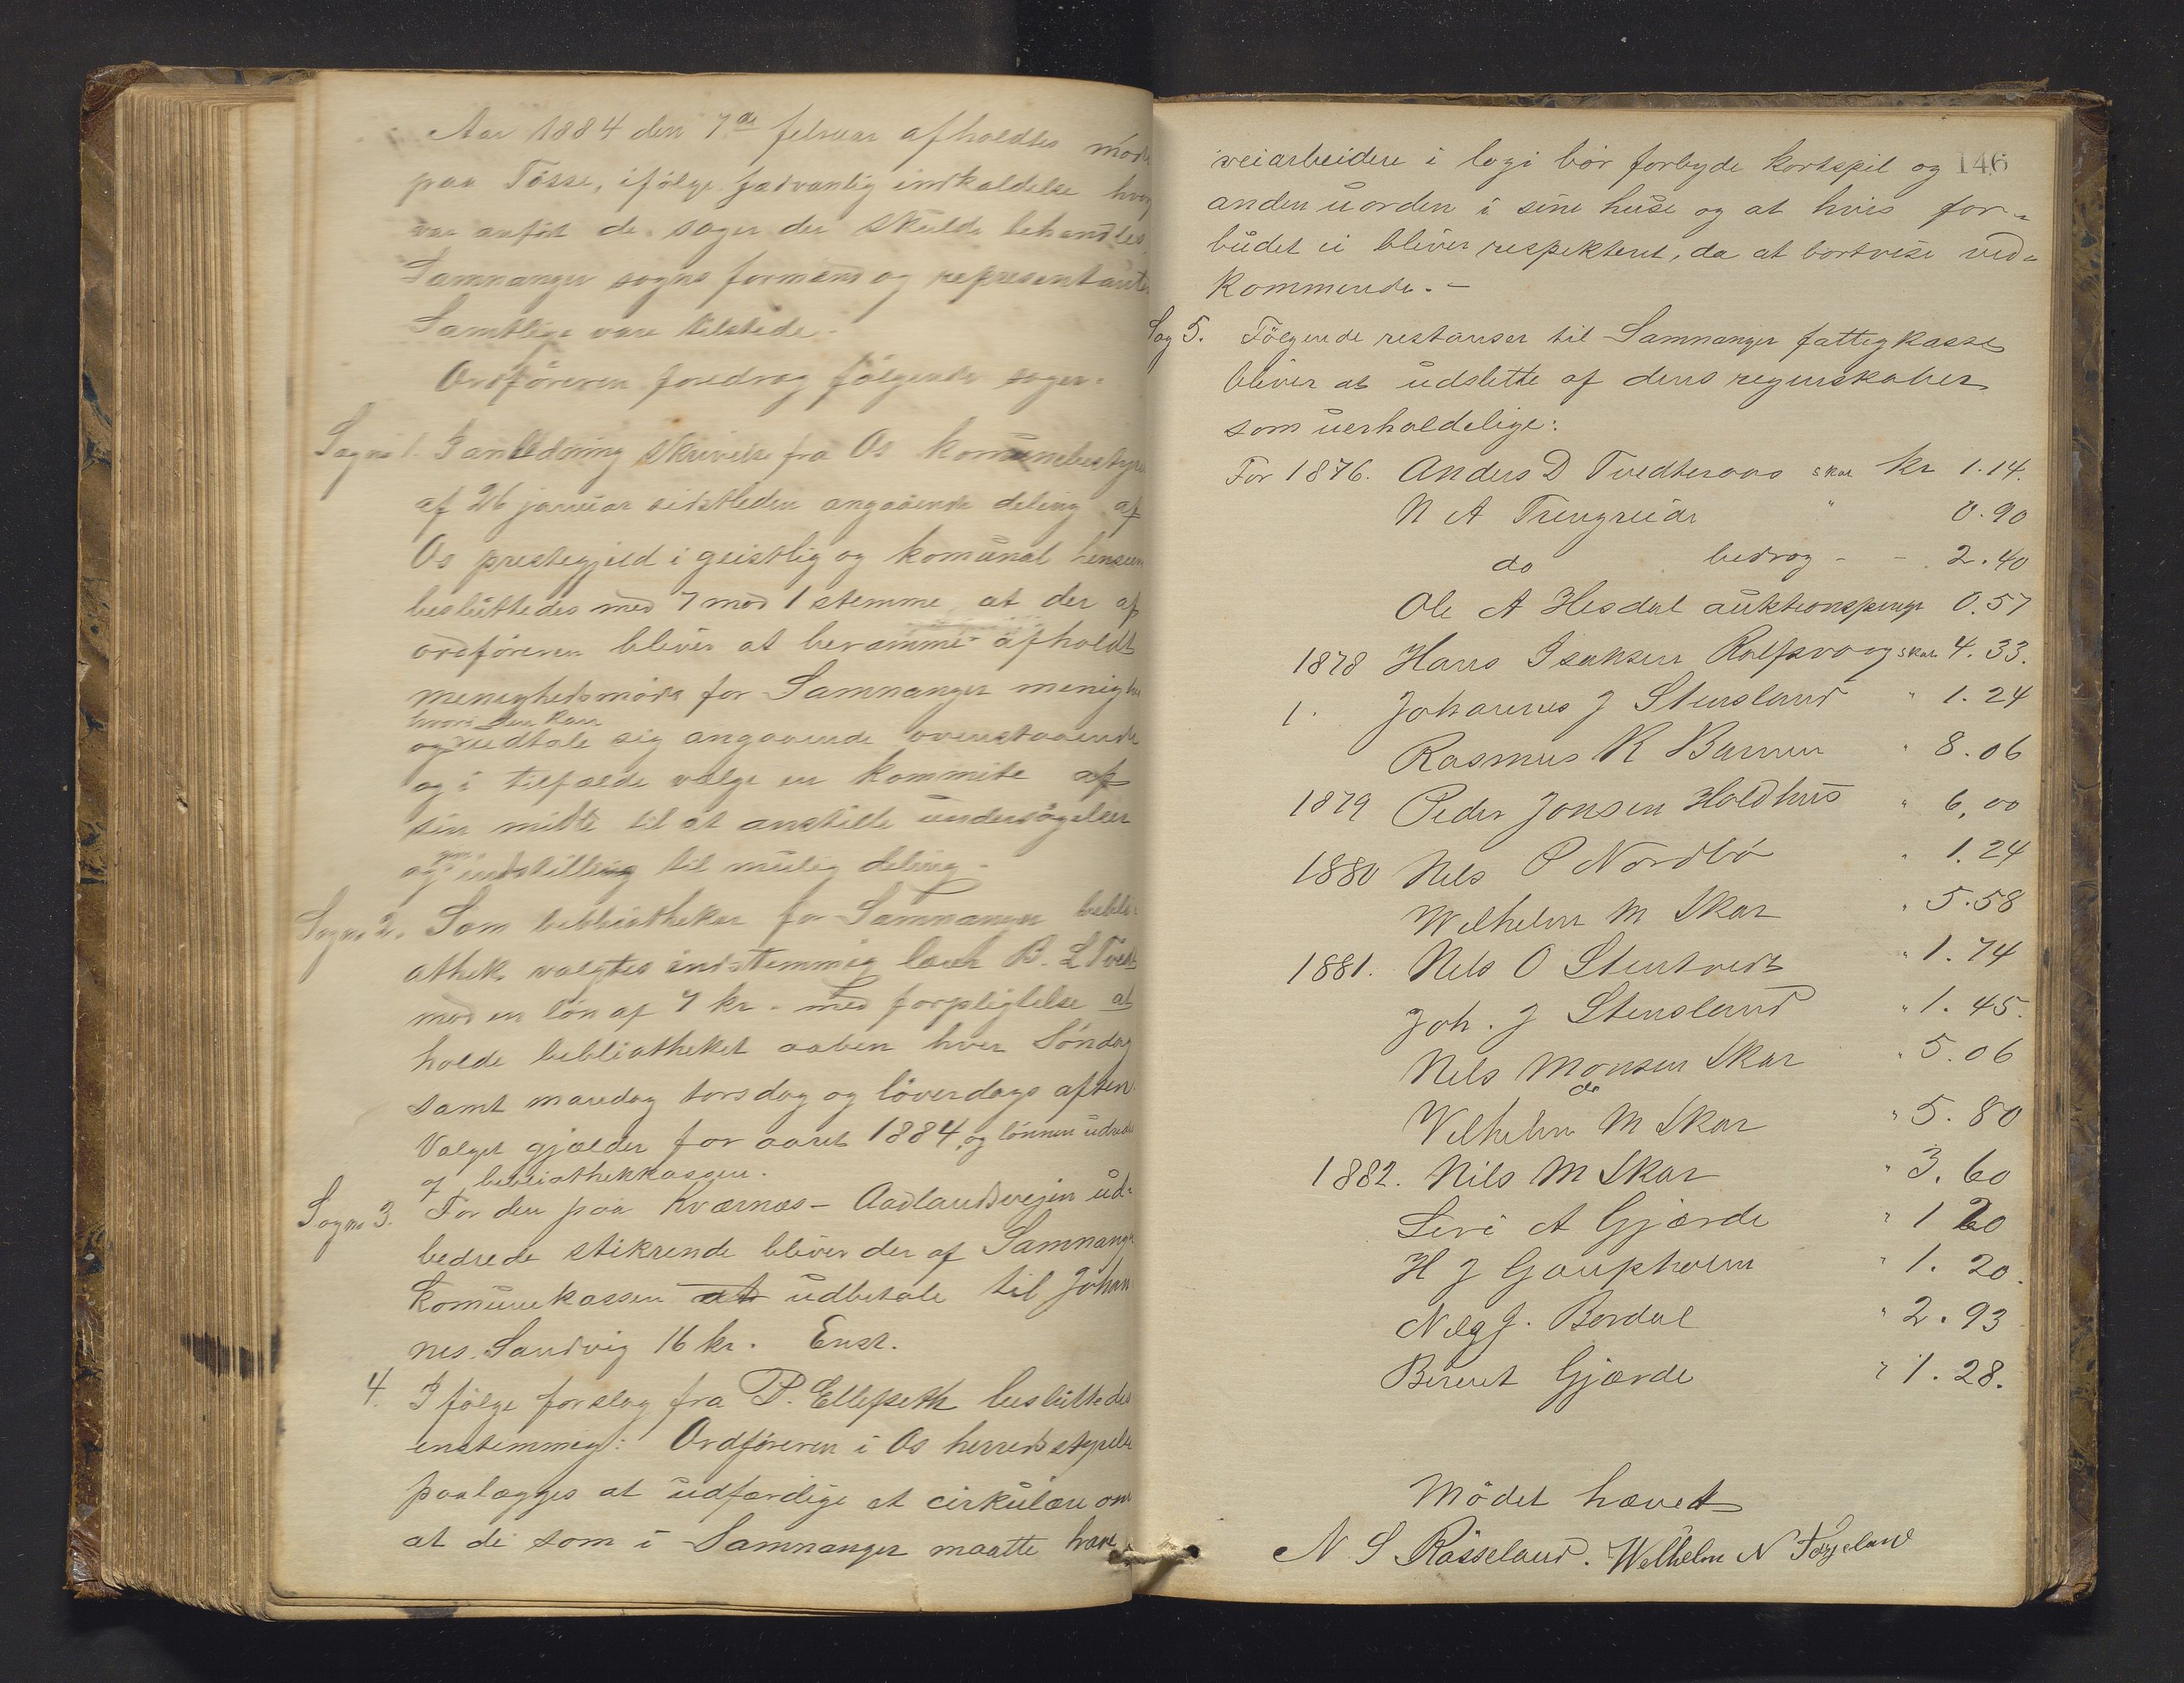 Aar 1884 den 7de februar afholdtes møde
paa Tøsse, ifølge sædvanlig indkaldelse hvor
var anført de sager der skulde behandles
Samnanger sogns formænd og representanter
Samtlige vare tilstede.
Ordføreren foredrog følgende sager.
Sag no 1. I anledning skrivelse fra Os komunebestyre
af 26 januar sidstleden angaaende deling af
Os prestegjeld i geistlig og komunal henseen
besluttedes med 7 mod 1 stemme at der af
ordføreren bliver at beramme afholdt
menighedsmøde for Samnanger menighe
hvori den kan
og udtale sig angaaende ovenstaaende
og i tilfælde vælge en kommite af
sin midte til at anstille undersøgelser
og indstilling til mulig deling.
Sag no 2. Som bibliothekar for Samnanger bibli-
athek valgtes enstemmig B. L Tvedt
mod en løn af 7 kr. med forpligtelse at
holde bibliotheket aaben hver Søndag
samt mandag torsdag og løverdags aften.
Valget gjælder for aaret 1884, og lønnen udrede
af bibliothekkassen.
Sag no 3. For den paa Kværnæs - Aadlandsveien ud-
bedrede stikrende bliver der af Samnanger
komunekassen at udbetale til Johan
nes Sandvig 16 kr. Enst.
4. I følge forslag fra P. Ellefseth besluttedes
enstemmig: Ordføreren i Os herredsstyrelse
paalægges at udfærdige et cirkulære om
at de som i Samnanger maatte have
146
veiarbeidere i logi bør forbyde kortspil og
anden uorden i sine huse og at hvis for-
budet ei bliver respekteret, da at bortvise ved-
kommende. -
Sag 5. Følgende restanser til Samnanger fattigkasse
bliver at udslette af dens regnskaber
som uerholdelige:
For 1876. Anders D Tvedteraas skat kr 1.14.
N A Trengreid " 0.90
do bedrag - - 2.40
Ole A Hisdal auktionspenge 0.57
1878 Hans Isaksen Rolfsvaag skat 4.33.
1. Johannes J Stensland " 1.24
Rasmus K Barmen " 8.06
1879 Peder Jonsen Holdhus " 6,00
1880 Nels P Nordbø " 1.24
Wilhelm M Skar " 5.58
1881. Nels O Stentvedt " 1.74
Joh. J Stensland " 1.45.
Nels Monsen Skar " 5.06
do
Vilhelm M Skar " 5.80
1882. Nils M Skar " 3.60
Levi A Gjærde " 1 20
H J Gaupholm " 1. 20.
J. Børdal " 2.93
Berent Gjærde " 1.28.
Mødet hævet
N. S Røsseland. Wilhelm N Tøsseland